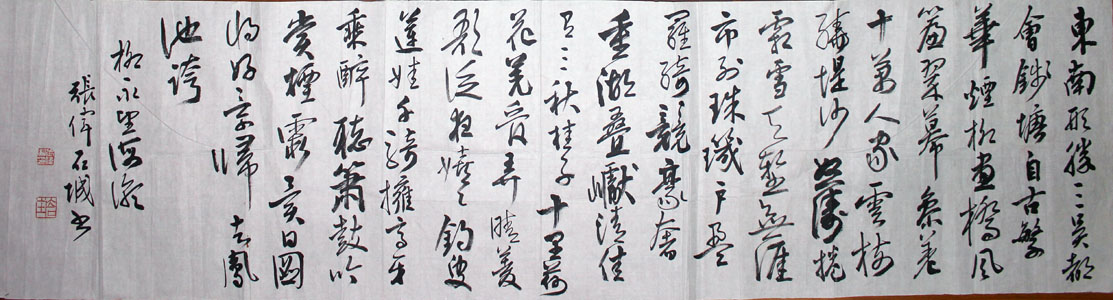 東南形勝三吳都
會錢塘自古繁
華煙柳畫橋風
簾翠幕參差
十萬人家雲樹
繞堤沙怒濤捲
霜雪天塹無涯
市列珠璣戶盈
羅綺競豪奢
重湖疊巘清佳
有三秋桂子十里荷
花羌管弄晴菱
歌泛夜嬉々釣叟
蓮娃千騎擁高牙
乘醉聽簫鼓吟
賞煙霞異日圖
將好景歸去鳳
池誇
柳永望海潮
張偉石城書